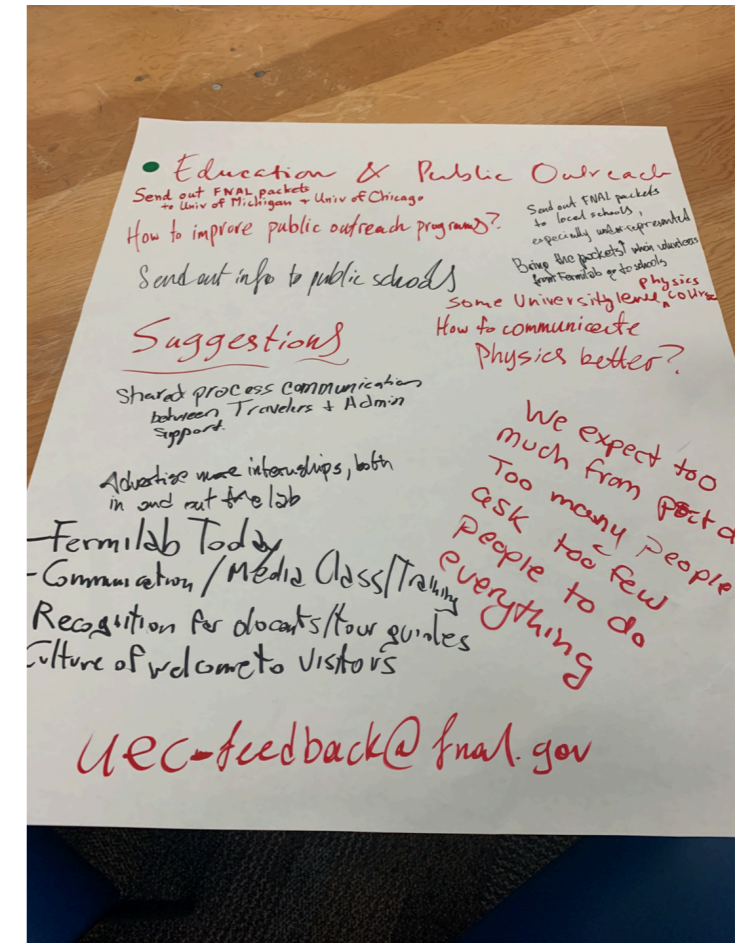 Education & Public Outreach
Send out FNAL packets
to Univ of Michigan + Univ of Chicago
How to improve public outreach programs?
Send out info to public schools
Send out FNAL packets
to local schools,
especially under-represented
Bring the packets! when volunteers
from Fermilab go to schools
Some University level Physics course
How to communicate
Physics better?
Suggestions
Shared process communication
between Travelers + Admin
Support.
Advertise more internships, both
in and out the lab
-Fermilab Today
-Communication/Media Class/Training
Recognition for docents/tour guides
Culture of welcome to visitors
We expect too
much from
Too many people
ask too few
people to do
everything
uec-feedback@fnal.gov